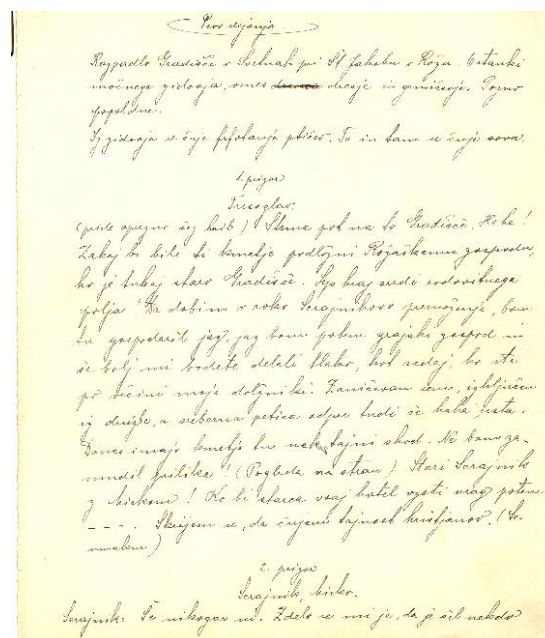 Prvo dejanje.
Razpadlo Gradišče v Svetnah pri Št. Jakobu v Rožu. Ostanki
močnega zidovja, vmes drevje in grmičevje. Pozno
popoldne.
Iz zidovja se čuje frfotanje ptičev. Tu in tam se čuje sova.
1. prizor
Trisoglav.
(pride oprezno čez hrib) Strma pot na to Gradišče. Ho ho!
Zakaj bi bili ti kmetje podložni Rožaškemu gospodu,
ko je tukaj staro Gradišče. Lep kraj sredi rodovitnega
polja! Da dobim v roke Serajnikovo premoženje, bom
tu gospodaril jaz, jaz bom potem grajski gospod in
še bolj mi bodete delali tlako, kot sedaj, ko ste
po večini moji dolžniki. Zaničevan sem, izključen
iz družbe, a srebrna petica odpre tudi še kaka usta.
Danes imajo kmetje tu nek tajni shod. Ne bom za-
mudil prilike! (Pogleda na stran) Stari Serajnik
z Mirkom! Ko bi starca vsaj hotel vzeti vrag potem
- - - - . Skrijem se, da čujem tajnost kristjanov. (Se
umakne)
2. prizor
Serajnik, Mirko.
Serajnik: Še nikogar ni. Zdelo se mi je, da je šel nekdo